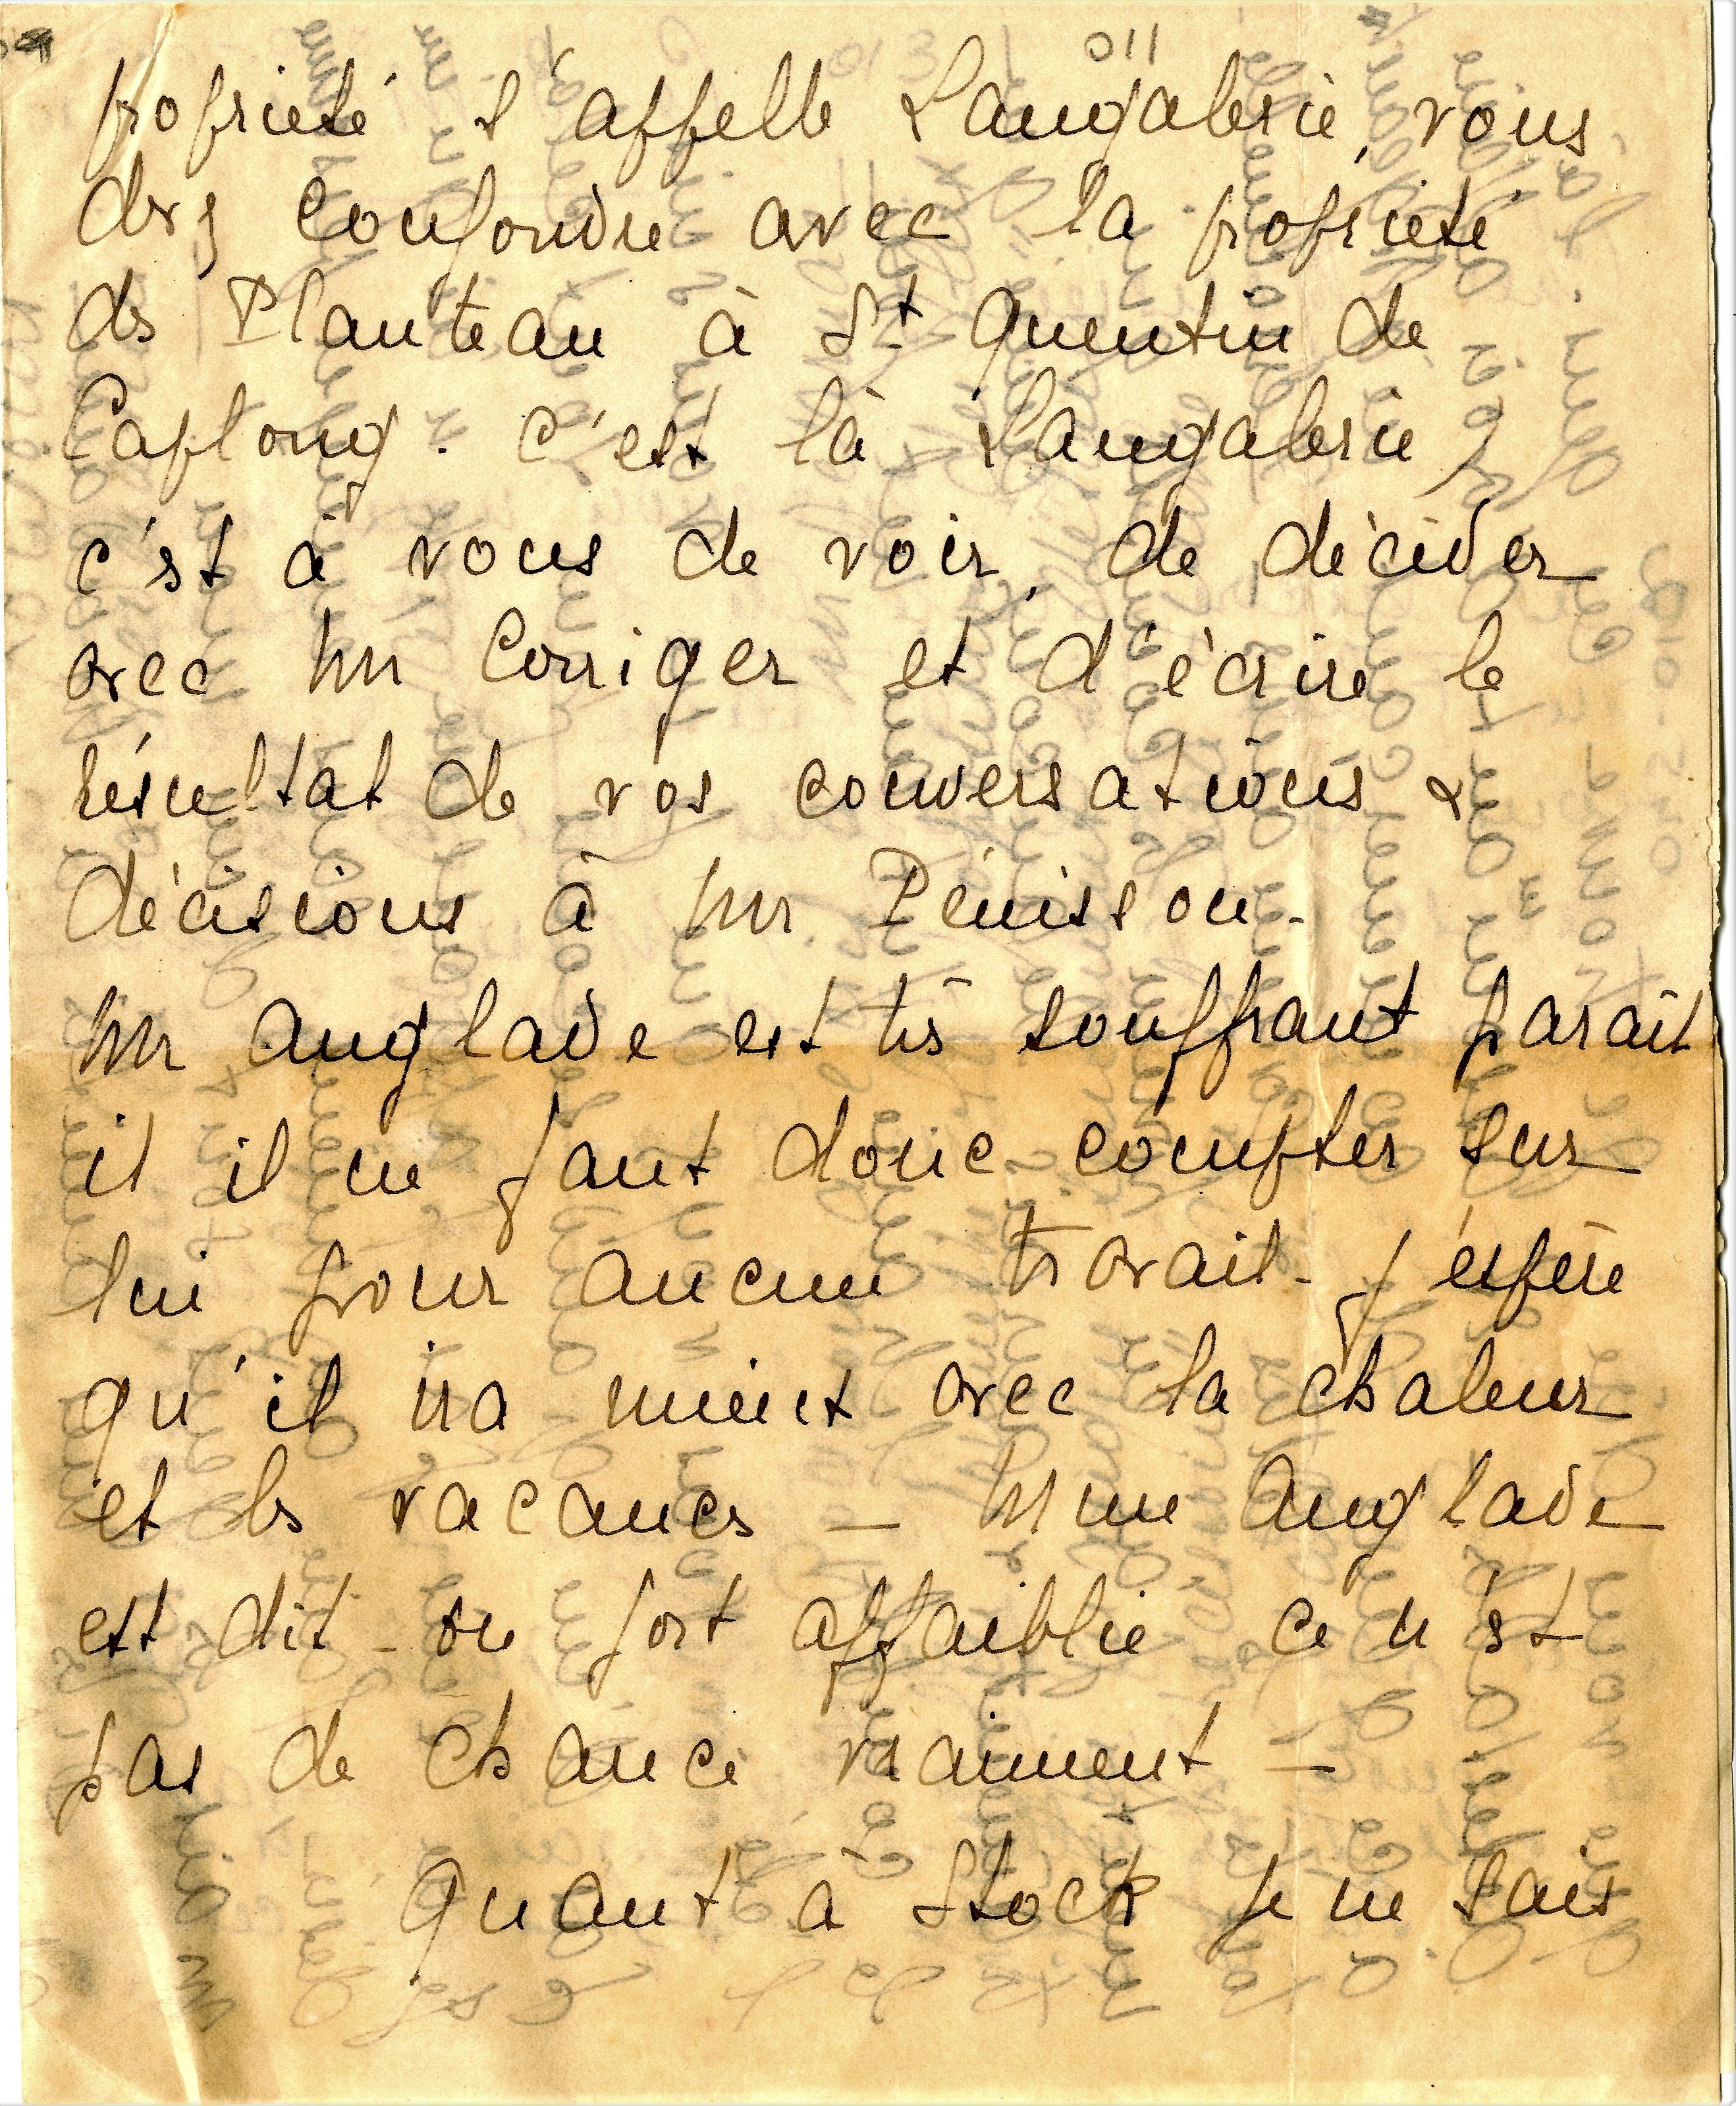 propriété s'appelle Langalerie, vous
devz confondre avec la propriété
ds Planteau à St Quentin de
Caplong. c'est là Langalerie,
c'st à vous de voir, de décider
avec Mr Corriger et d'écrire le
résultat de vos conversations &
décisions à Mr. Pénisson.
Mr Anglade est très souffrant parait
il il ne faut donc compter sur
lui pour aucun travail - j'espère
qu'il ira mieux avec la chaleur
et ls vacances - Mme Anglade
est dit-on fort affaiblie ce n'st
pas de chance vraiment -
Quant à Stock je ne sais